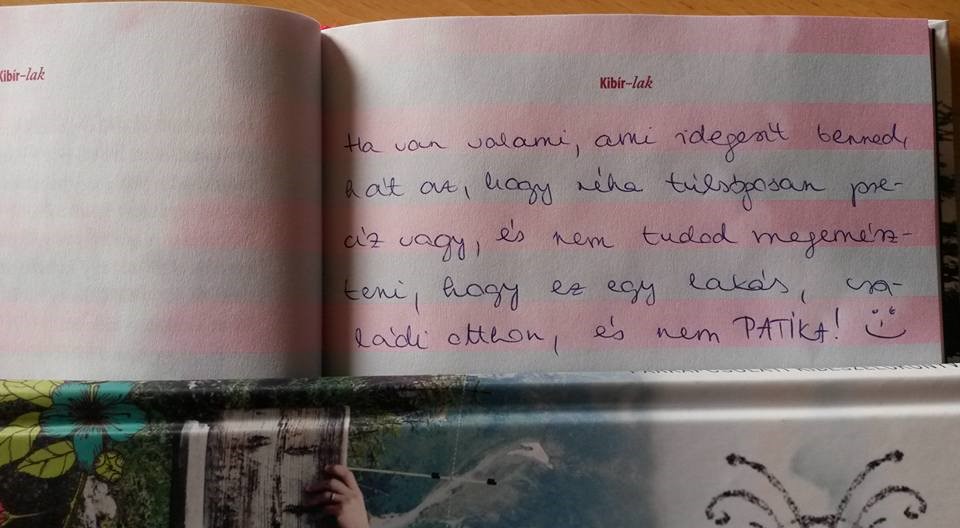 Kibír-lak
Kibír-lak
Ha van valami, ami idegesít benned,
hát az, hogy néha túlságosan pre-
cíz vagy, és nem tudod megemész-
teni, hogy ez egy lakás, csa-
ládi otthon, és nem PATIKA!